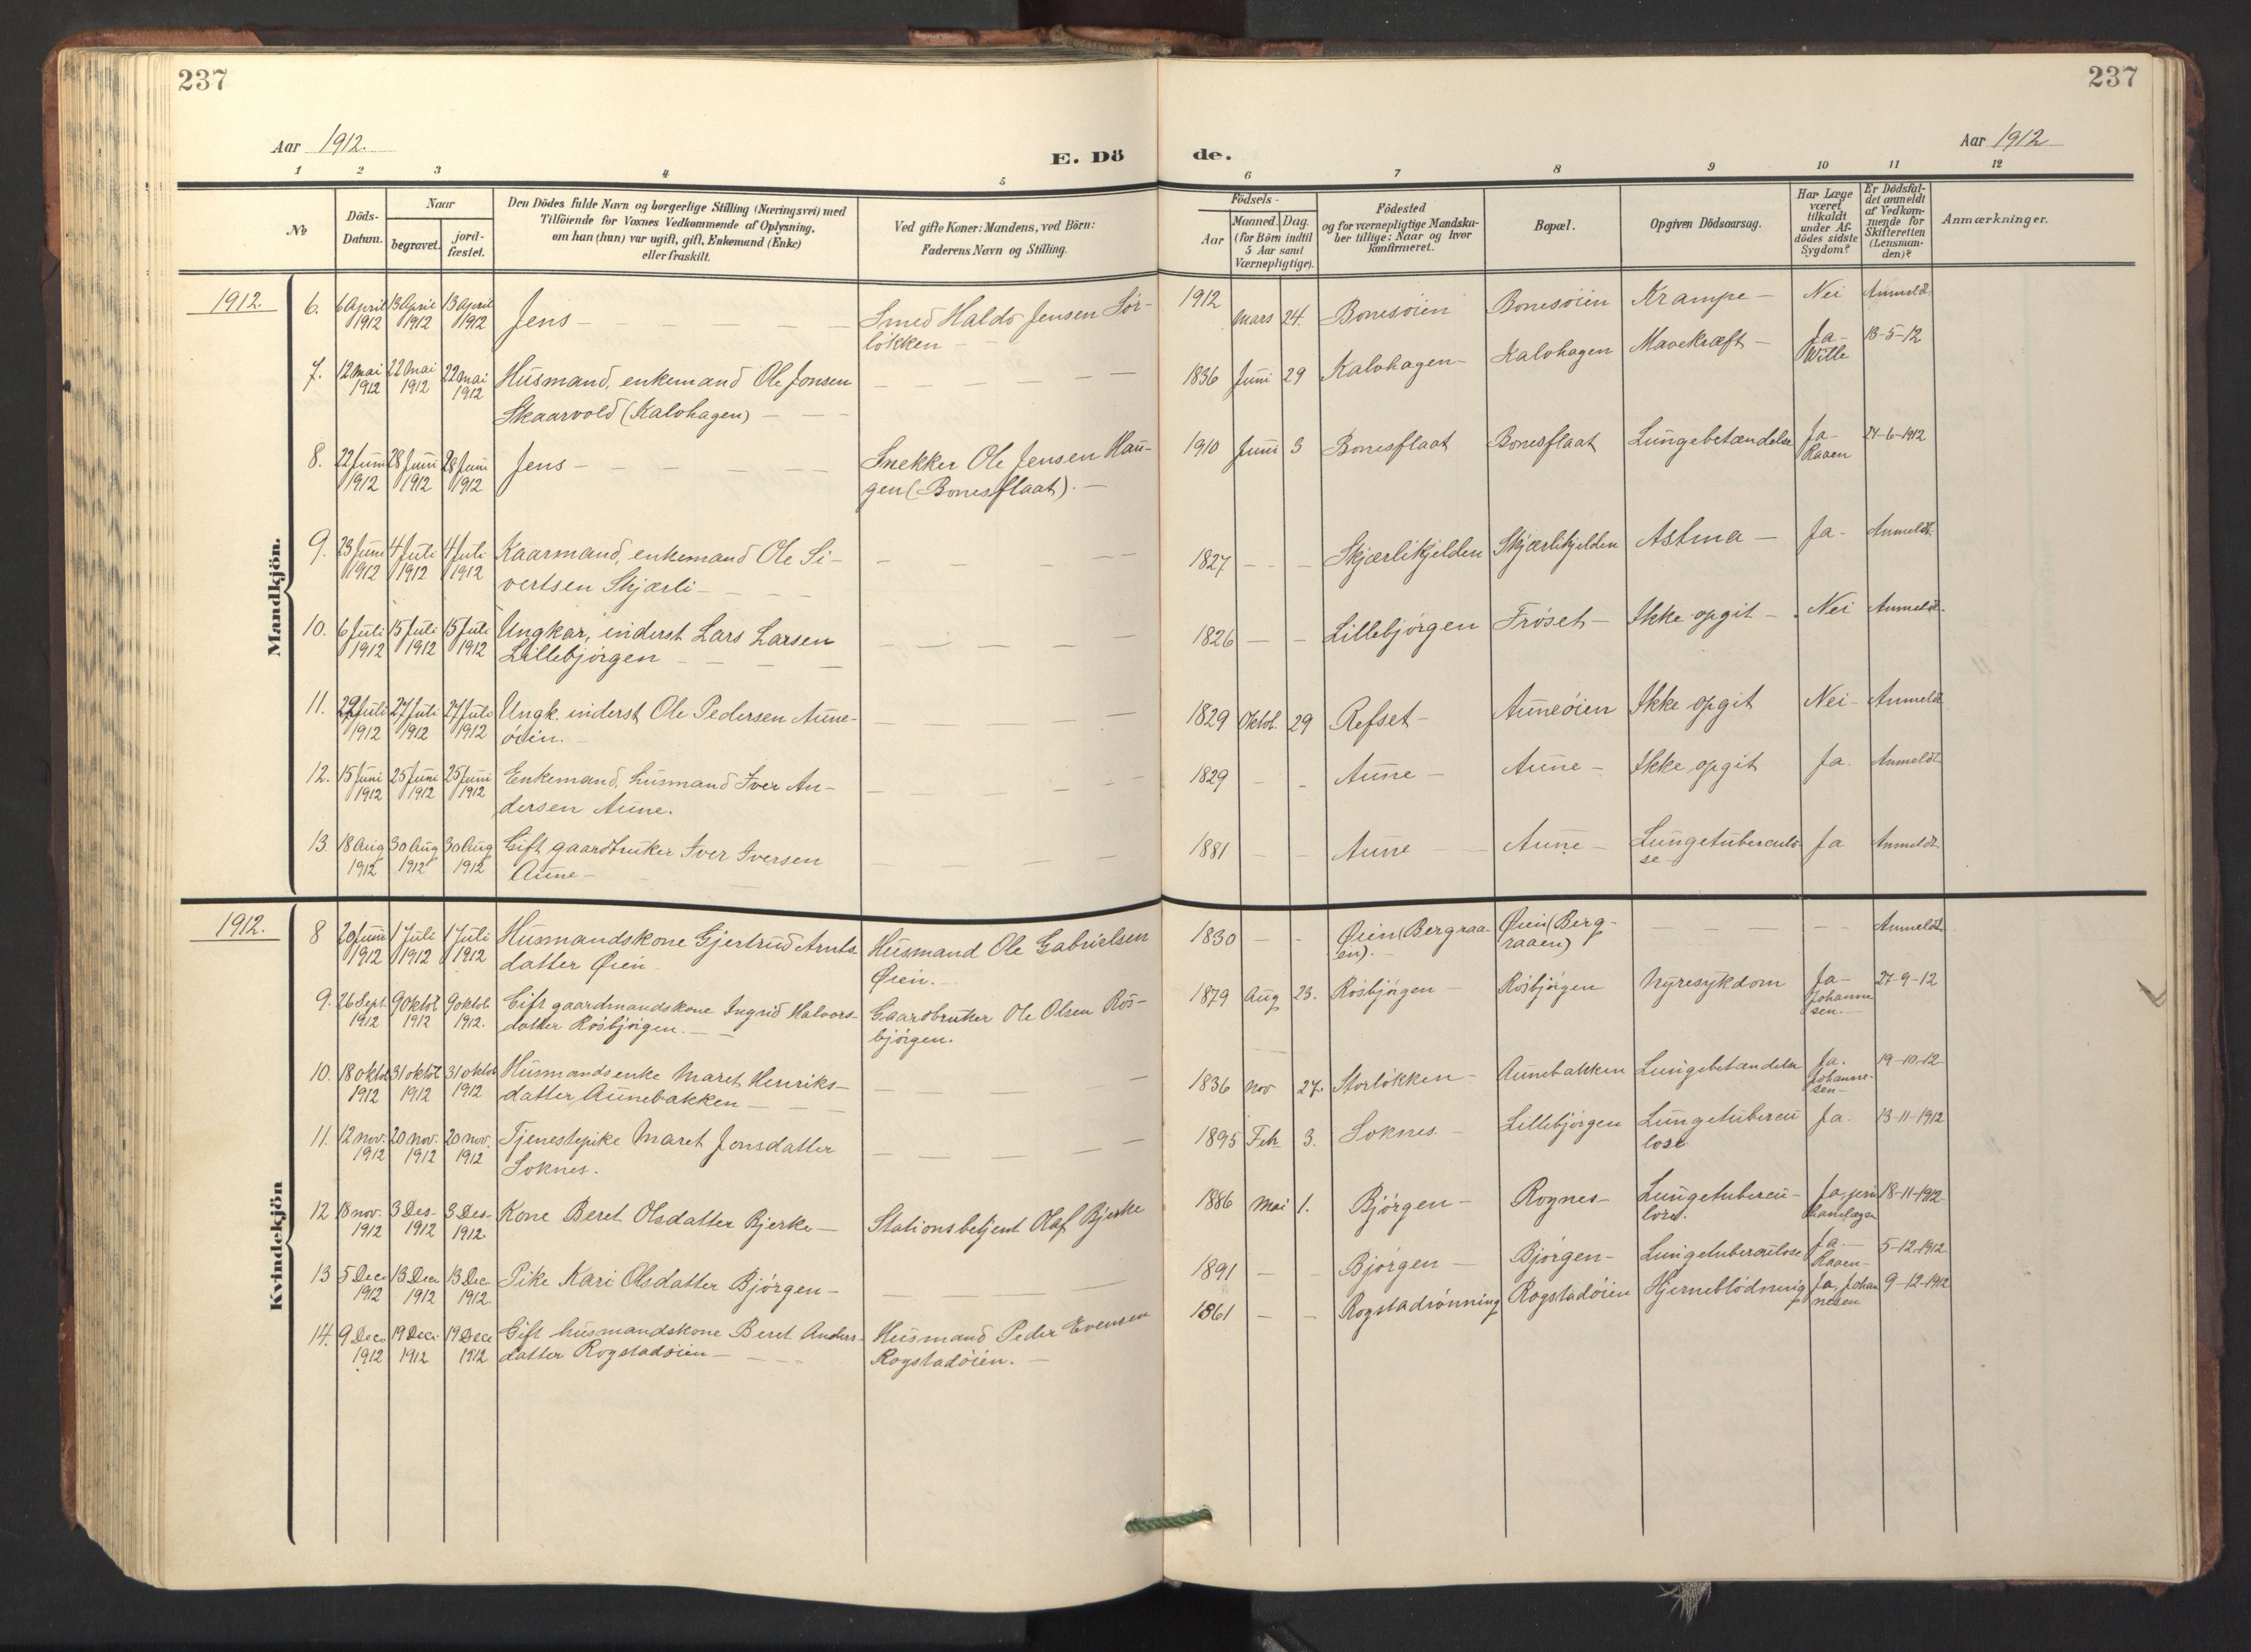 237
237
Aar 1912.
E. Dö
de.
Aar 1912
1 2 3 4 5 6 7 8 9 10 11 12
No
Döds-
Datum.
Naar
begravet.
jord-
fæstet.
Den Dödes fulde Navn og borgerlige Stilling (Næringsvei) med
Tilföiende for Voxnes Vedkommende af Oplysning,
om han (hun) var ugift, gift, Enkemand (Enke)
eller fraskilt.
Ved gifte Koner: Mandens, ved Börn:
Faderens Navn og Stilling.
Födsels-
Aar
Maaned. Dag.
(for Börn indtil
5 Aar samt
Værnepligtige).
Födested
og for værnepligtige Mandska-
ber tillige: Naar og hvor
konfirmeret.
Bopæl.
Opgiven Dödsaarsag.
Har Læge
været
tilkaldt
under Af-
dödes sidste
Sygdom?
Er Dödsfal-
det anmeldt
af Vedkom-
mende for
Skifteretten
(Lensman-
den)?
Anmærkninger.
Mandkjön.
1912. 6. 6 April 13 April 13 April Jens — Smed Haldo Jensen Sör- 1912 Mars 24. Bonesøien Bonesøien Krampe — Nei Anmeldt.
1912 1912 1912 løkken —
7. 12 mai 22 mai 22 mai Husmand, enkemand Ole Jonsen — 1836 Juni 29 Kalvhagen — Kalvhagen Mavekræft — Ja- 13-5-12
1912 1912 1912 Skaarvold (Kalvhagen) — Wille
8. 22 Juni 28 Juni 28 Juni Jens — Snekker Ole Jensen Hau- 1910 Juni 3 Bonesflaat Bonesflaat Lungebetændelse Ja- 24-6-1912
1912 1912 1912 gen (Bonesflaat). — Raaen
9. 23 Juni 4 Juli 4 Juli Kaarmand, enkemand Ole Si- — 1827 — Skjærlikjelden Skjærlikjelden Astma — Ja- Anmeldt.
1912 1912 1912 vertsen Skjærli —
10. 6 Juli 15 Juli 15 Juli Ungkar, inderst Lars Larsen — 1826 — Lillebjørgen Frøset — Ikke opgit — Nei Anmeldt.
1912 1912 1912 Lillebjørgen —
11. Juli 27 Juli 27 Juli Ungk. inderst Ole Pedersen Aune- — 1829 Oktob. 29 Refset — Auneøien Ikke opgit Nei — Anmeldt
1912 1912 1912 øien.
12. 15 Juni 25 Juni 25 Juni Enkemand, husmand Iver An- — 1829 — Aune — Aune — Ikke opgit Ja. Anmeldt
1912 1912 1912 dersen Aune.
13 18 Aug 30 Aug 30 Aug Gift gaardbruker Iver Iversen — 1881 — Aune — Aune — Lungetuberculo- Ja Anmeldt.
1912 1912 1912 Aune — se
Kvindekjön
1912. 8 20 Juni 1 Juli 1 Juli Husmandskone Gjertrud Arnts- Husmand Ole Gabrielsen 1830 — Øien (Bergraa- Øien (Berg- — Anmeldt
1912 1912 1912 datter Øien Øien. en). — raaen)
9. 26 Sept. 9 oktob 9 oktob. Gift gaardmandskone Ingrid Halvors- Gaardbruker Ole Olsen Røs- 1879 Aug 23. Røsbjørgen — Røsbjørgen Nyresykdom Ja- 27-9-12
1912 1912 1912. datter Røsbjørgen. — bjørgen. Johanne
sen. —
10. 18 oktob 31 oktob 31 oktob Husmandsenke Maret Henriks- — 1836 Nov 27. Storløkken — Aunebakken Lungebetændelse Ja. 19-10-12
1912 1912 1912 datter Aunebakken — Johanne-
sen —
11. 12 nov. 20 nov. 20 nov. Tjenestepike Maret Jonsdatter — 1895 Feb 3. Soknes — Lillebjørgen Lungetubercu Ja. 13-11-1912
1912 1912 1912 Soknes. lose
12 18 nov. 3 Des- 3 Des- Kone Beret Olsdatter Bjerke — Stationsbetjent Olaf Bjerke 1886 Mai 1. Bjørgen — Rognes — Lungetubercu- Ja, jern 18-11-1912
1912 1912 1912. lose. banelægen
13 5 Dec. 13 Dec. 13 Dec Pike Kari Olsdatter Bjørgen — 1891 — Bjørgen — Bjørgen — Lungetuberculose Ja. — 5-12-1912
1912 1912 1912. Raaen —
14. 9 Dec. 19 Dec. 19 Dece Gift husmandskone Beret Anders- Husmand Peder Evensen 1861 — Rogstadrønning Rogstadøien Hjerneblødning Ja, Johan 9-12-1912
1912 1912 1912 datter Rogstadøien — Rogstadøien. — nesen